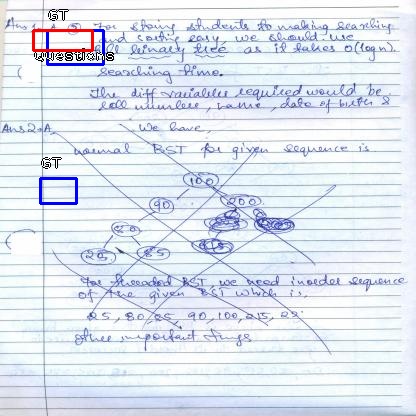 GT
Ans 1. A. For storing students to making searching
and sorting easy, we should use
full binary tree as it takes O(logn).
Questions
searching time.
The diff variables required would be
roll number, name, date of birth &
Ans 2. A. We have,
normal BST for given sequence is
GT
100
90 200
80
25 85 215
For threaded BST, we need inorder sequence
of the given BST which is,
25, 80, 85, 90, 100, 215, 22
other important things